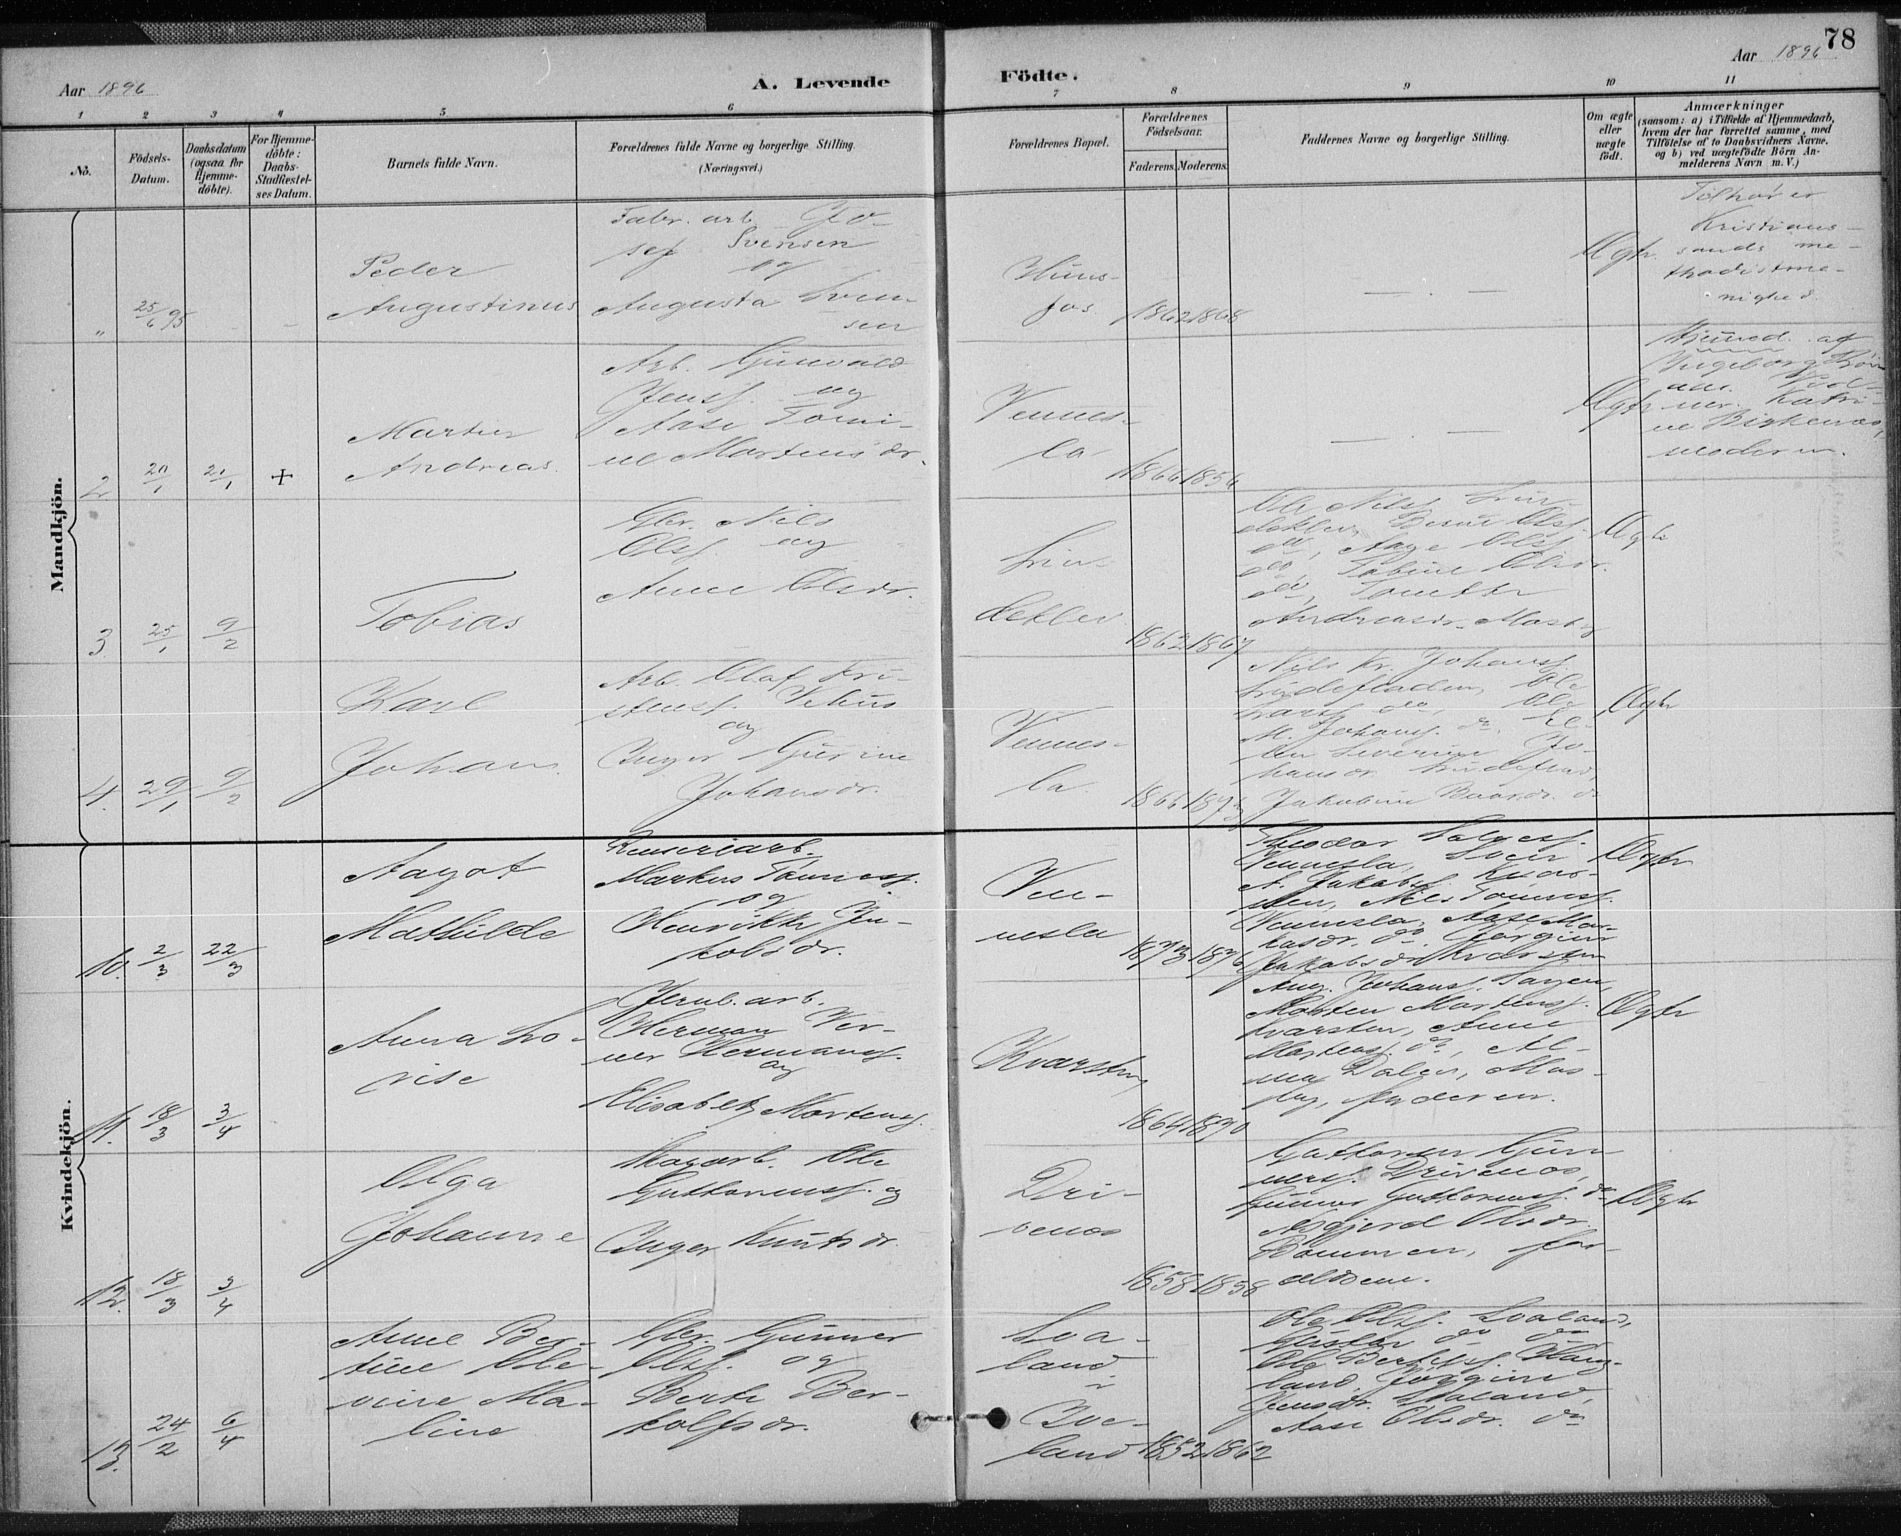 78
Aar 1896
A. Levende
Födte.
Aar 1896
1 2 3 4 5 6 7 8 9 10 11
No.
Födsels-
Datum.
Daabsdatum
(ogsaa for
Hjemme-
döbte).
For Hjemme-
döbte:
Daabs-
Stadfæstel-
ses Datum.
Barnets fulde Navn.
Forældrenes fulde Navne og borgerlige Stilling.
(Næringsvei.)
Forældrenes Bopæl.
Forældrenes
Födselsaar.
Faderens. Moderens.
Faddernes Navne og borgerlige Stilling.
Om ægte
eller
uægte
født.
Anmærkninger
(saasom: a) i Tilfælde af Hjemmedaab,
hvem der har forrettet samme, med
Tilföielse af to Daabsvidners Navne,
og b) ved uægtefödte Börn An-
melderens Navn m. V.)
Mandkjön.
"
25/6 95
Peder
Augustinus
Fabr. arb. Jo-
sef Svensen
og
Augusta Sven-
sen
Huns-
fos
1862 1868
Ægte
Tilhører
Kristians-
sands me-
thodistme-
nighed.
2
20/1
21/1
+
Martin
Andreas
Arb. Gunvald
Jensf. og
Aase Tomi-
ne Martinsdr.
Vennes-
la
1866 1856
Ægte
Hjemmed. af
Ingeborg
Birkenes,
moderen.
3
25/1
9/2
Tobias
Gbr. Nils
Olsf. og
Anne Olsdr.
1862 1867
Ole Nilsf.
do, Aage Olsf.
do, Tobine Olsdr.
do, Tomette
Andreasdr. Mosby
Ægte
4.
29/1
9/2
Karl
Johan
Arb. Olaf Tri-
stensf. Vehus
og
Inger Gurine
Johansdr.
Vennes-
la
1866 1873
Nils Kr. Johansf.
Lindefladen, Ole
Larsf. do, Ole
M. Johansf. do, El-
len Severine Jo-
hansdr. Lindeflad,
Jakobine Baardr. do
Ægte
Kvindekjön.
10.
2/3
22/3
Aagot
Mathilde
Renseriarb.
Markus Tomesf.
og
Henrikke Ja-
kobsdr.
Ven-
nesla
1873 1876
Theodor Salvesf.
Vennesla, Sven
A. Jakobsf. Kvar-
sten, Nils Tomesf.
Vennesla, Aase Mar-
kusdr. do, Jørgine
Jakobsdr. Kvarsten
Ægte
11.
18/3
3/4
Anna Lo-
vise
Jernb. arb.
Herman Ver-
ner Hermansf.
og
Elisabet Mortensd.
Kvarsten
1864 1870
Aug. Johansf.
Morten Martensf.
Kvarsten, Anne
Martensf. do, Al-
ma Dalen, Mos-
by, faderen.
Ægte
12.
18/3
3/4
Olga
Johanne
Ole
Guttormsf. og
Inger Knutsdr.
Dri-
venes
1858 1858
Guttorm Gun-
nersf. Drivenes,
Gunner Guttormsf. do
Asgjerd Olsdr.
Bommen, for-
ældrene.
Ægte
13.
24/2
6/4
Anne Ber-
tine Ole-
vine Ma-
line
Gbr. Gunner
Olsf. og
Berte Ber-
tolfsdr.
Loa-
land
i
Ive-
land
1852 1862
Ole Olsf. Loaland,
Gusten do do
Ole Bertelsf. Haug-
land, Jørgine
Jensdr. Loaland,
Aase Olsdr. do